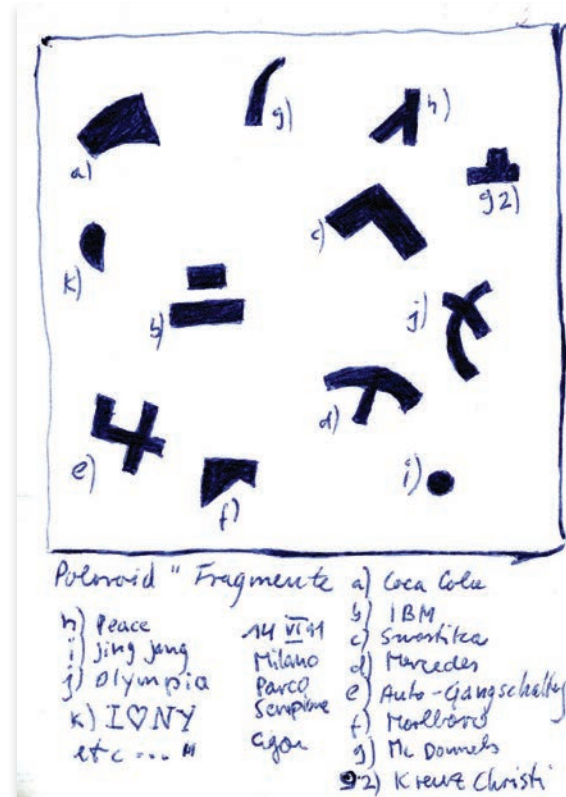 a)
g)
h)
g2)
c)
k)
b)
j)
d)
e)
f)
i)
Polaroid "Fragmente
h) Peace
i) jing jang
j) Olympia
k) I♡NY
etc ... "
14 VI 91
Milano
Parco
Sempione
a) Coca Cola
b) IBM
c) Swastika
d) Mercedes
e) Auto-Gangschaltung
f) Marlboro
g) Mc Donnels
g2) Kreuz Christi